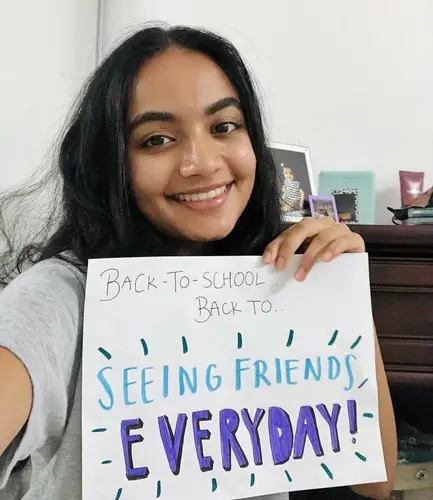 BACK-TO-SCHOOL...
BACK TO..
SEEING FRIENDS
EVERYDAY!